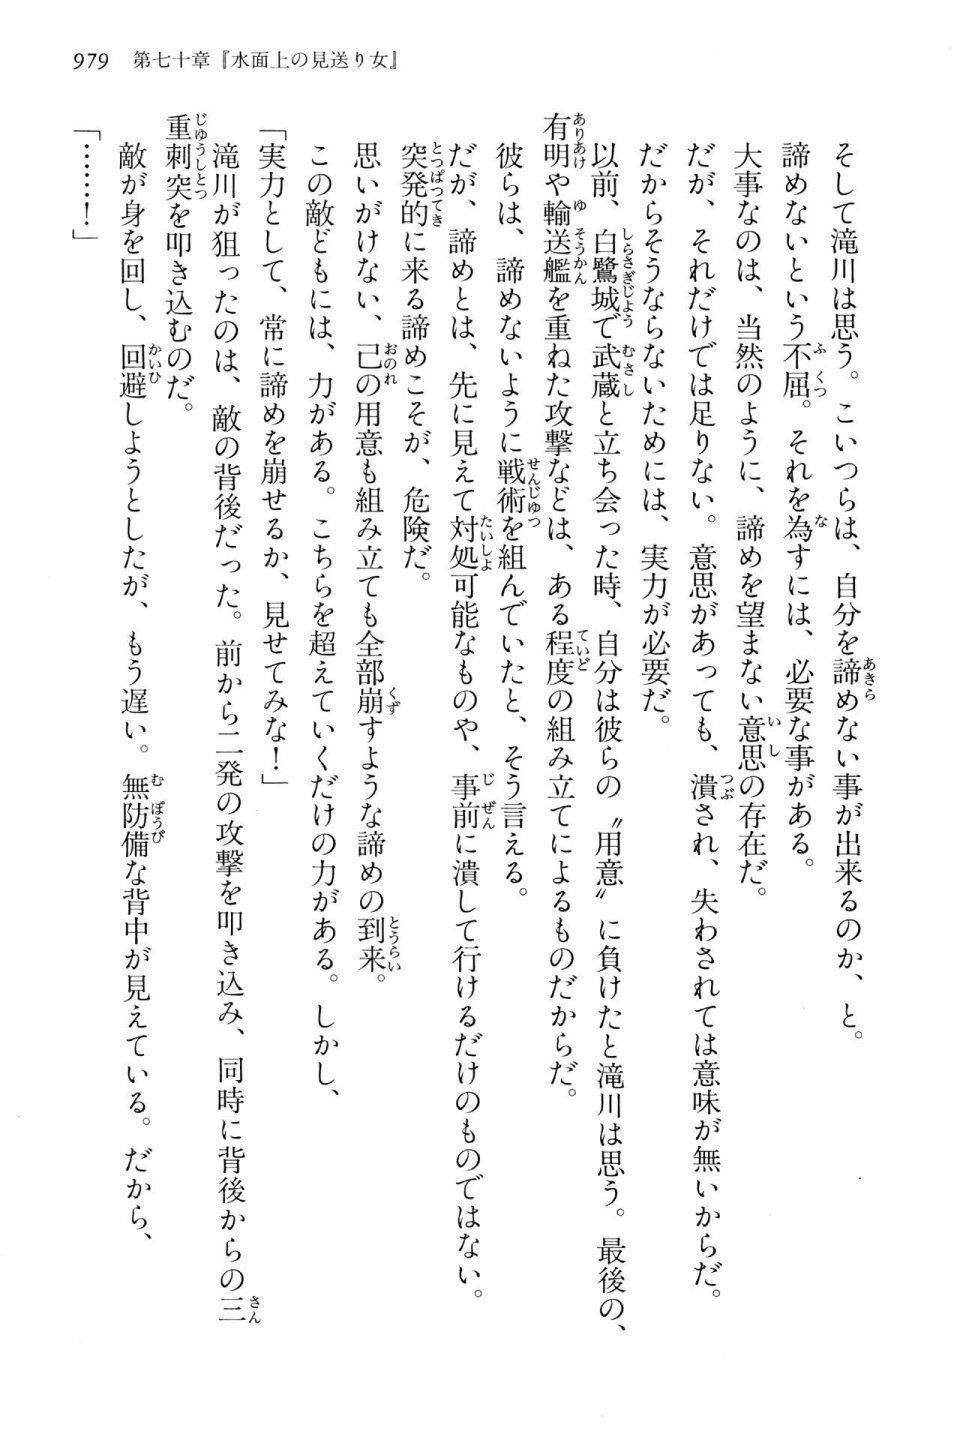 979 第七十章『水面上の見送り女』
そして滝川は思う。こいつらは、自分を諦めない事が出来るのか、と。
諦めないという不屈。それを為すには、必要な事がある。
大事なのは、当然のように、諦めを望まない意思の存在だ。
だが、それだけでは足りない。意思があっても、潰され、失わされては意味が無いからだ。
だからそうならないためには、実力が必要だ。
以前、白鷺城で武蔵と立ち会った時、自分は彼らの〝用意〟に負けたと滝川は思う。最後の、
有明や輸送艦を重ねた攻撃などは、ある程度の組み立てによるものだからだ。
彼らは、諦めないように戦術を組んでいたと、そう言える。
だが、諦めとは、先に見えて対処可能なものや、事前に潰して行けるだけのものではない。
突発的に来る諦めこそが、危険だ。
思いがけない、己の用意も組み立ても全部崩すような諦めの到来。
この敵どもには、力がある。こちらを超えていくだけの力がある。しかし、
「実力として、常に諦めを崩せるか、見せてみな！」
滝川が狙ったのは、敵の背後だった。前から二発の攻撃を叩き込み、同時に背後からの三
重刺突を叩き込むのだ。
敵が身を回し、回避しようとしたが、もう遅い。無防備な背中が見えている。だから、
「……！」